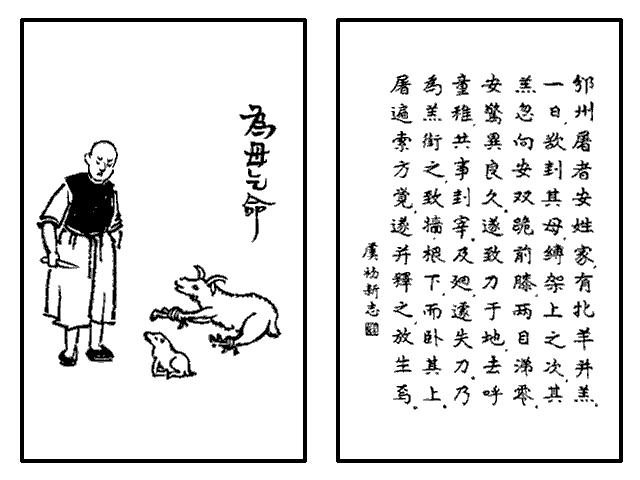 為母乞命
邠州屠者安姓家,有牝羊并羔。
一日,欲刲其母,縛架上之次,其
羔忽向安双跪前膝,两目涕零。
安驚異良久,遂致刀于地,去呼
童稚共事刲宰,及迴,遽失刀,乃
為羔銜之,致墙根下,而卧其上。
屠遍索方覺,遂并釋之,放生焉。
虞初新志